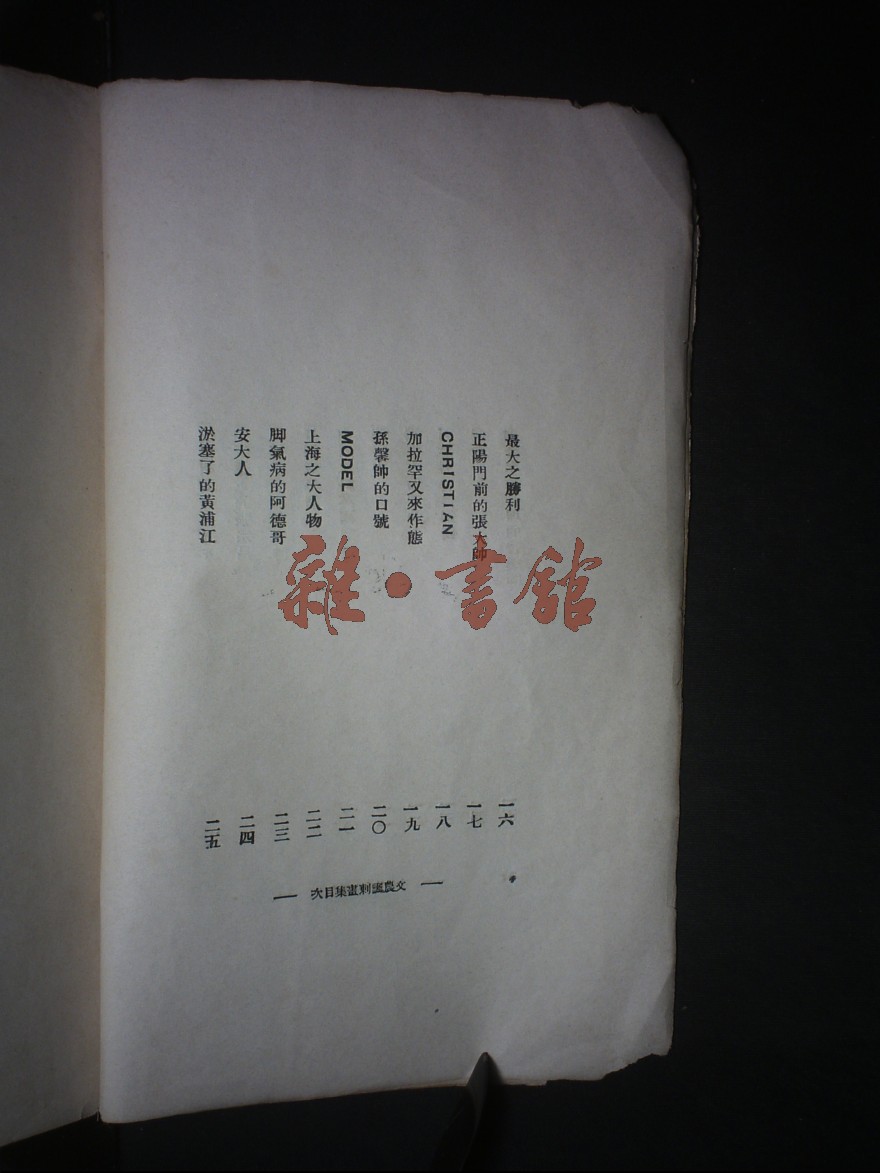 最大之勝利 一六
正陽門前的張大帥 一七
CHRISTIAN 一八
加拉罕又來作態 一九
孫馨帥的口號 二〇
MODEL 二一
上海之大人物 二二
脚氣病的阿德哥 二三
安大人 二四
淤塞了的黃浦江 二五
文農諷刺畫集目次
雜·書館